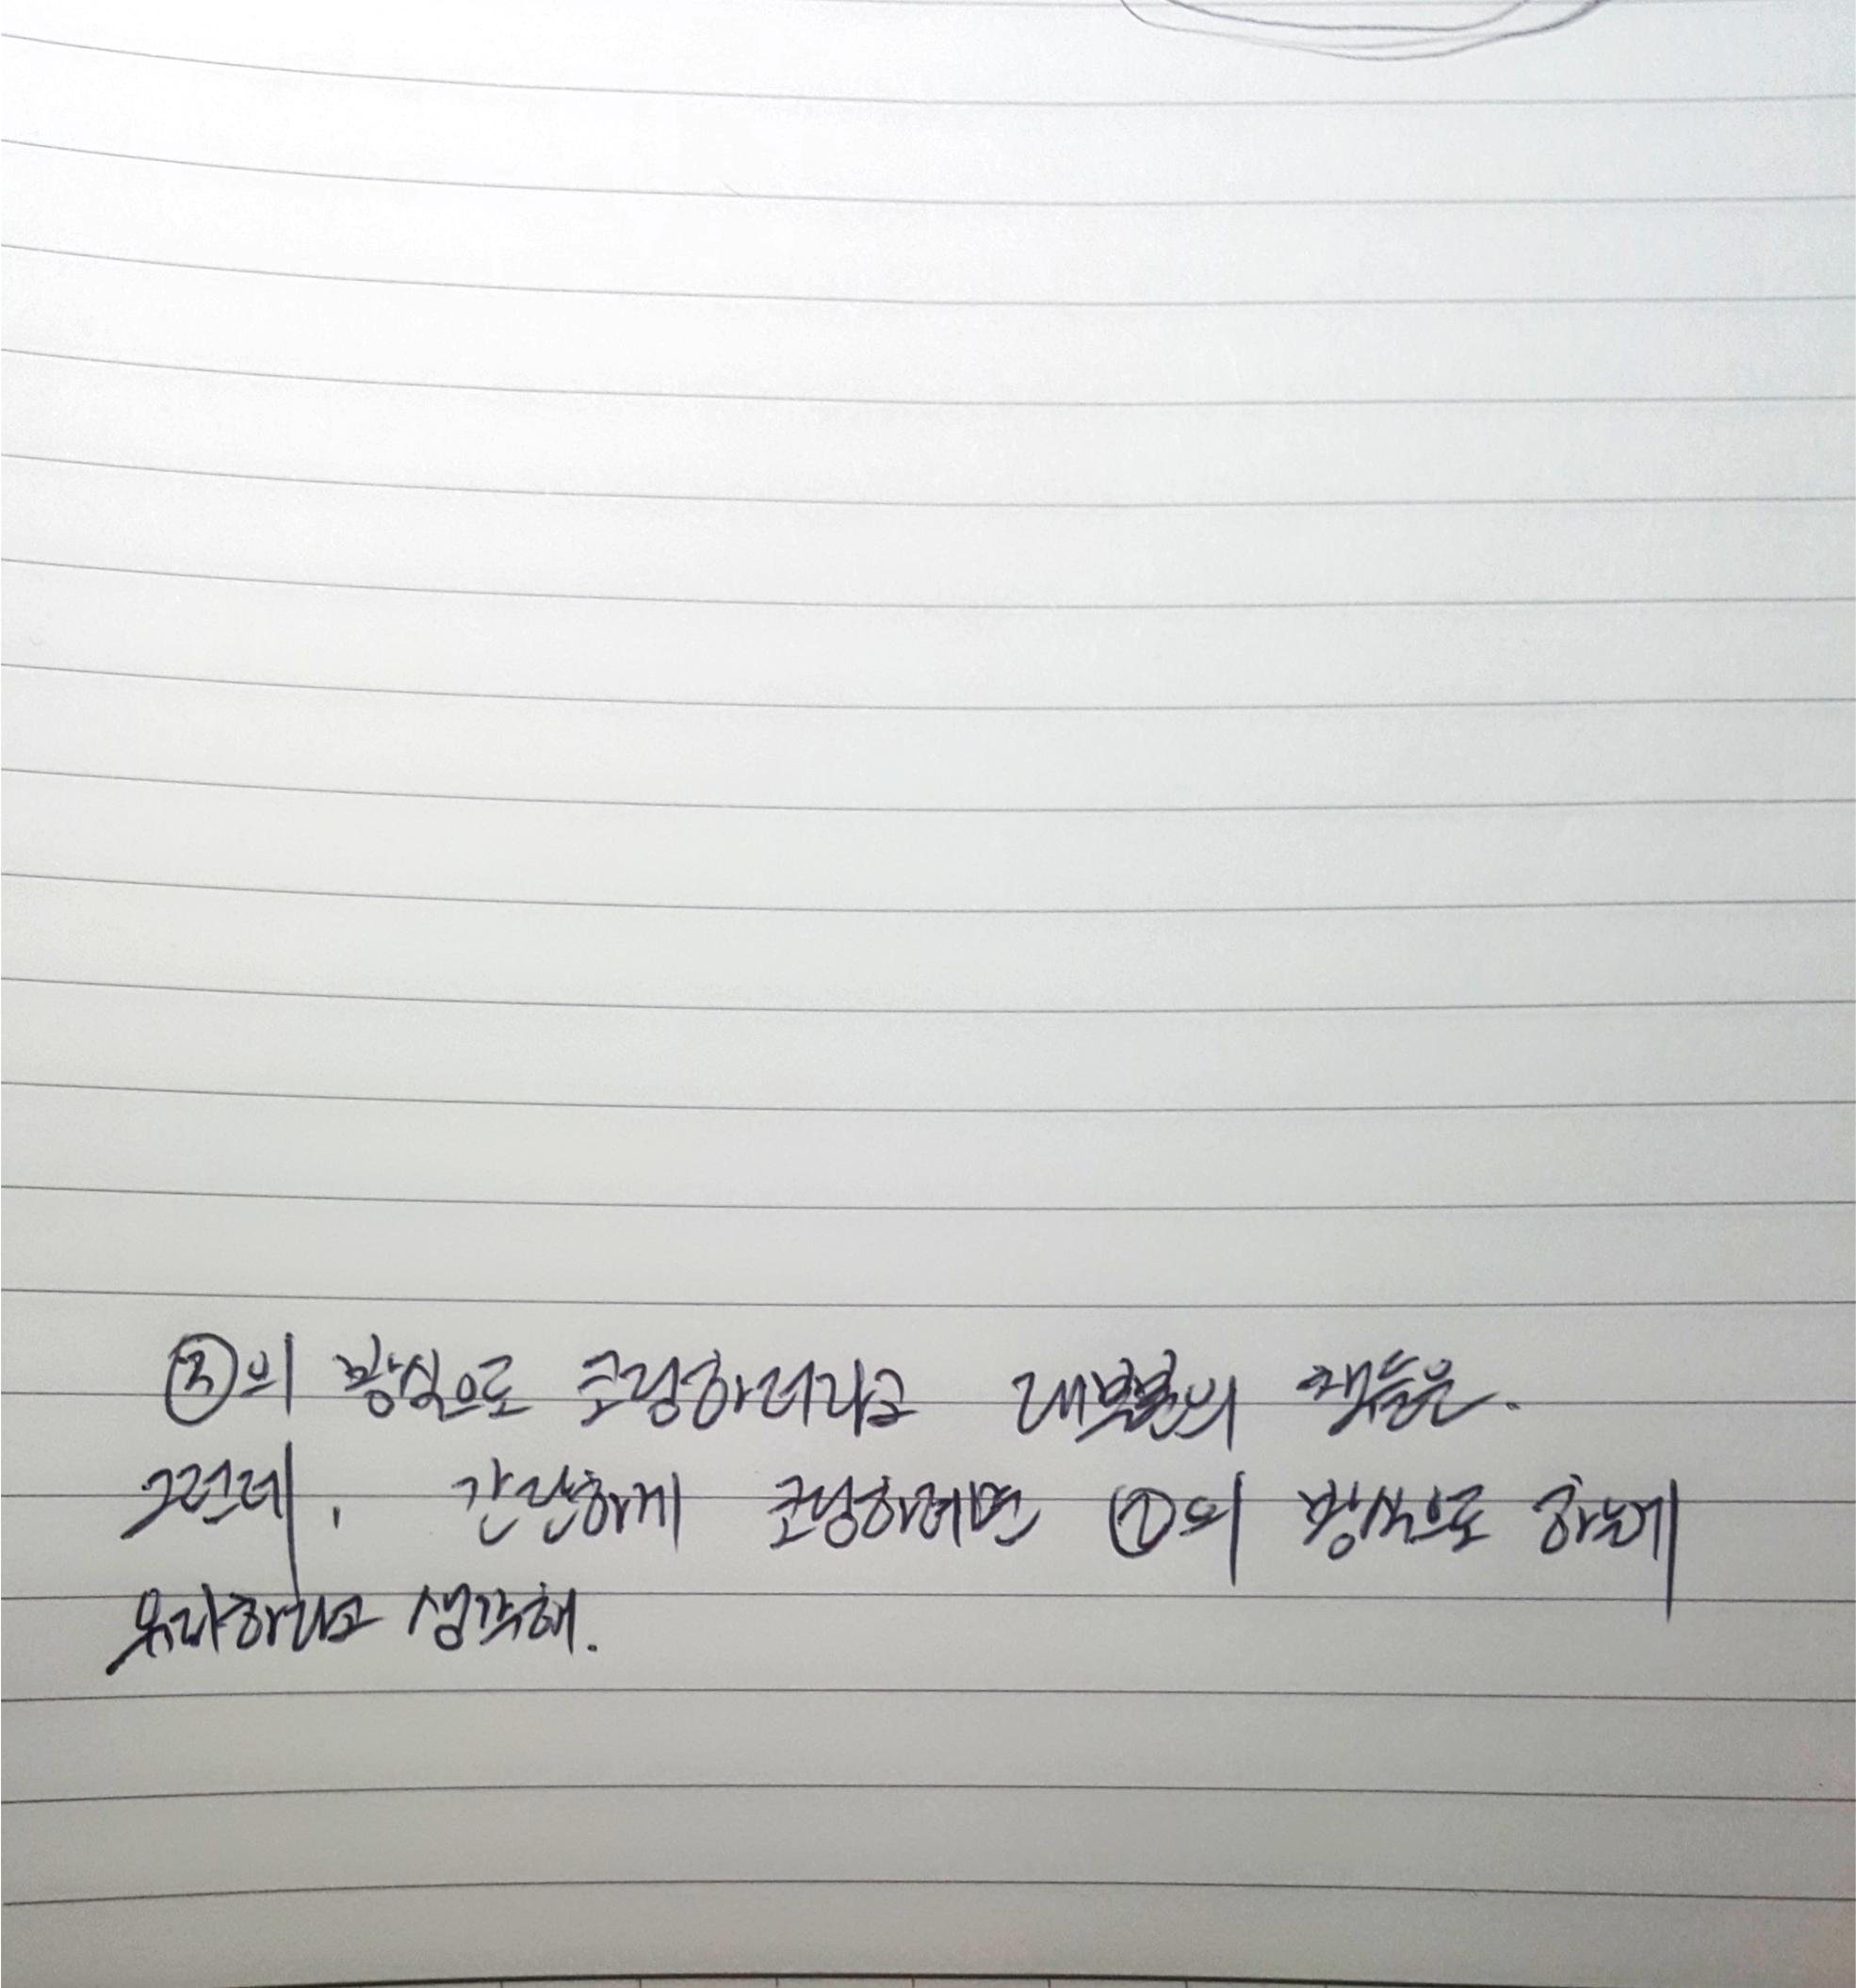 ③의 방식으로 코딩하더라고 대부분의 책들은.
그런데, 간단하게 코딩하려면 ①의 방식으로 하는게
유리하다고 생각해.